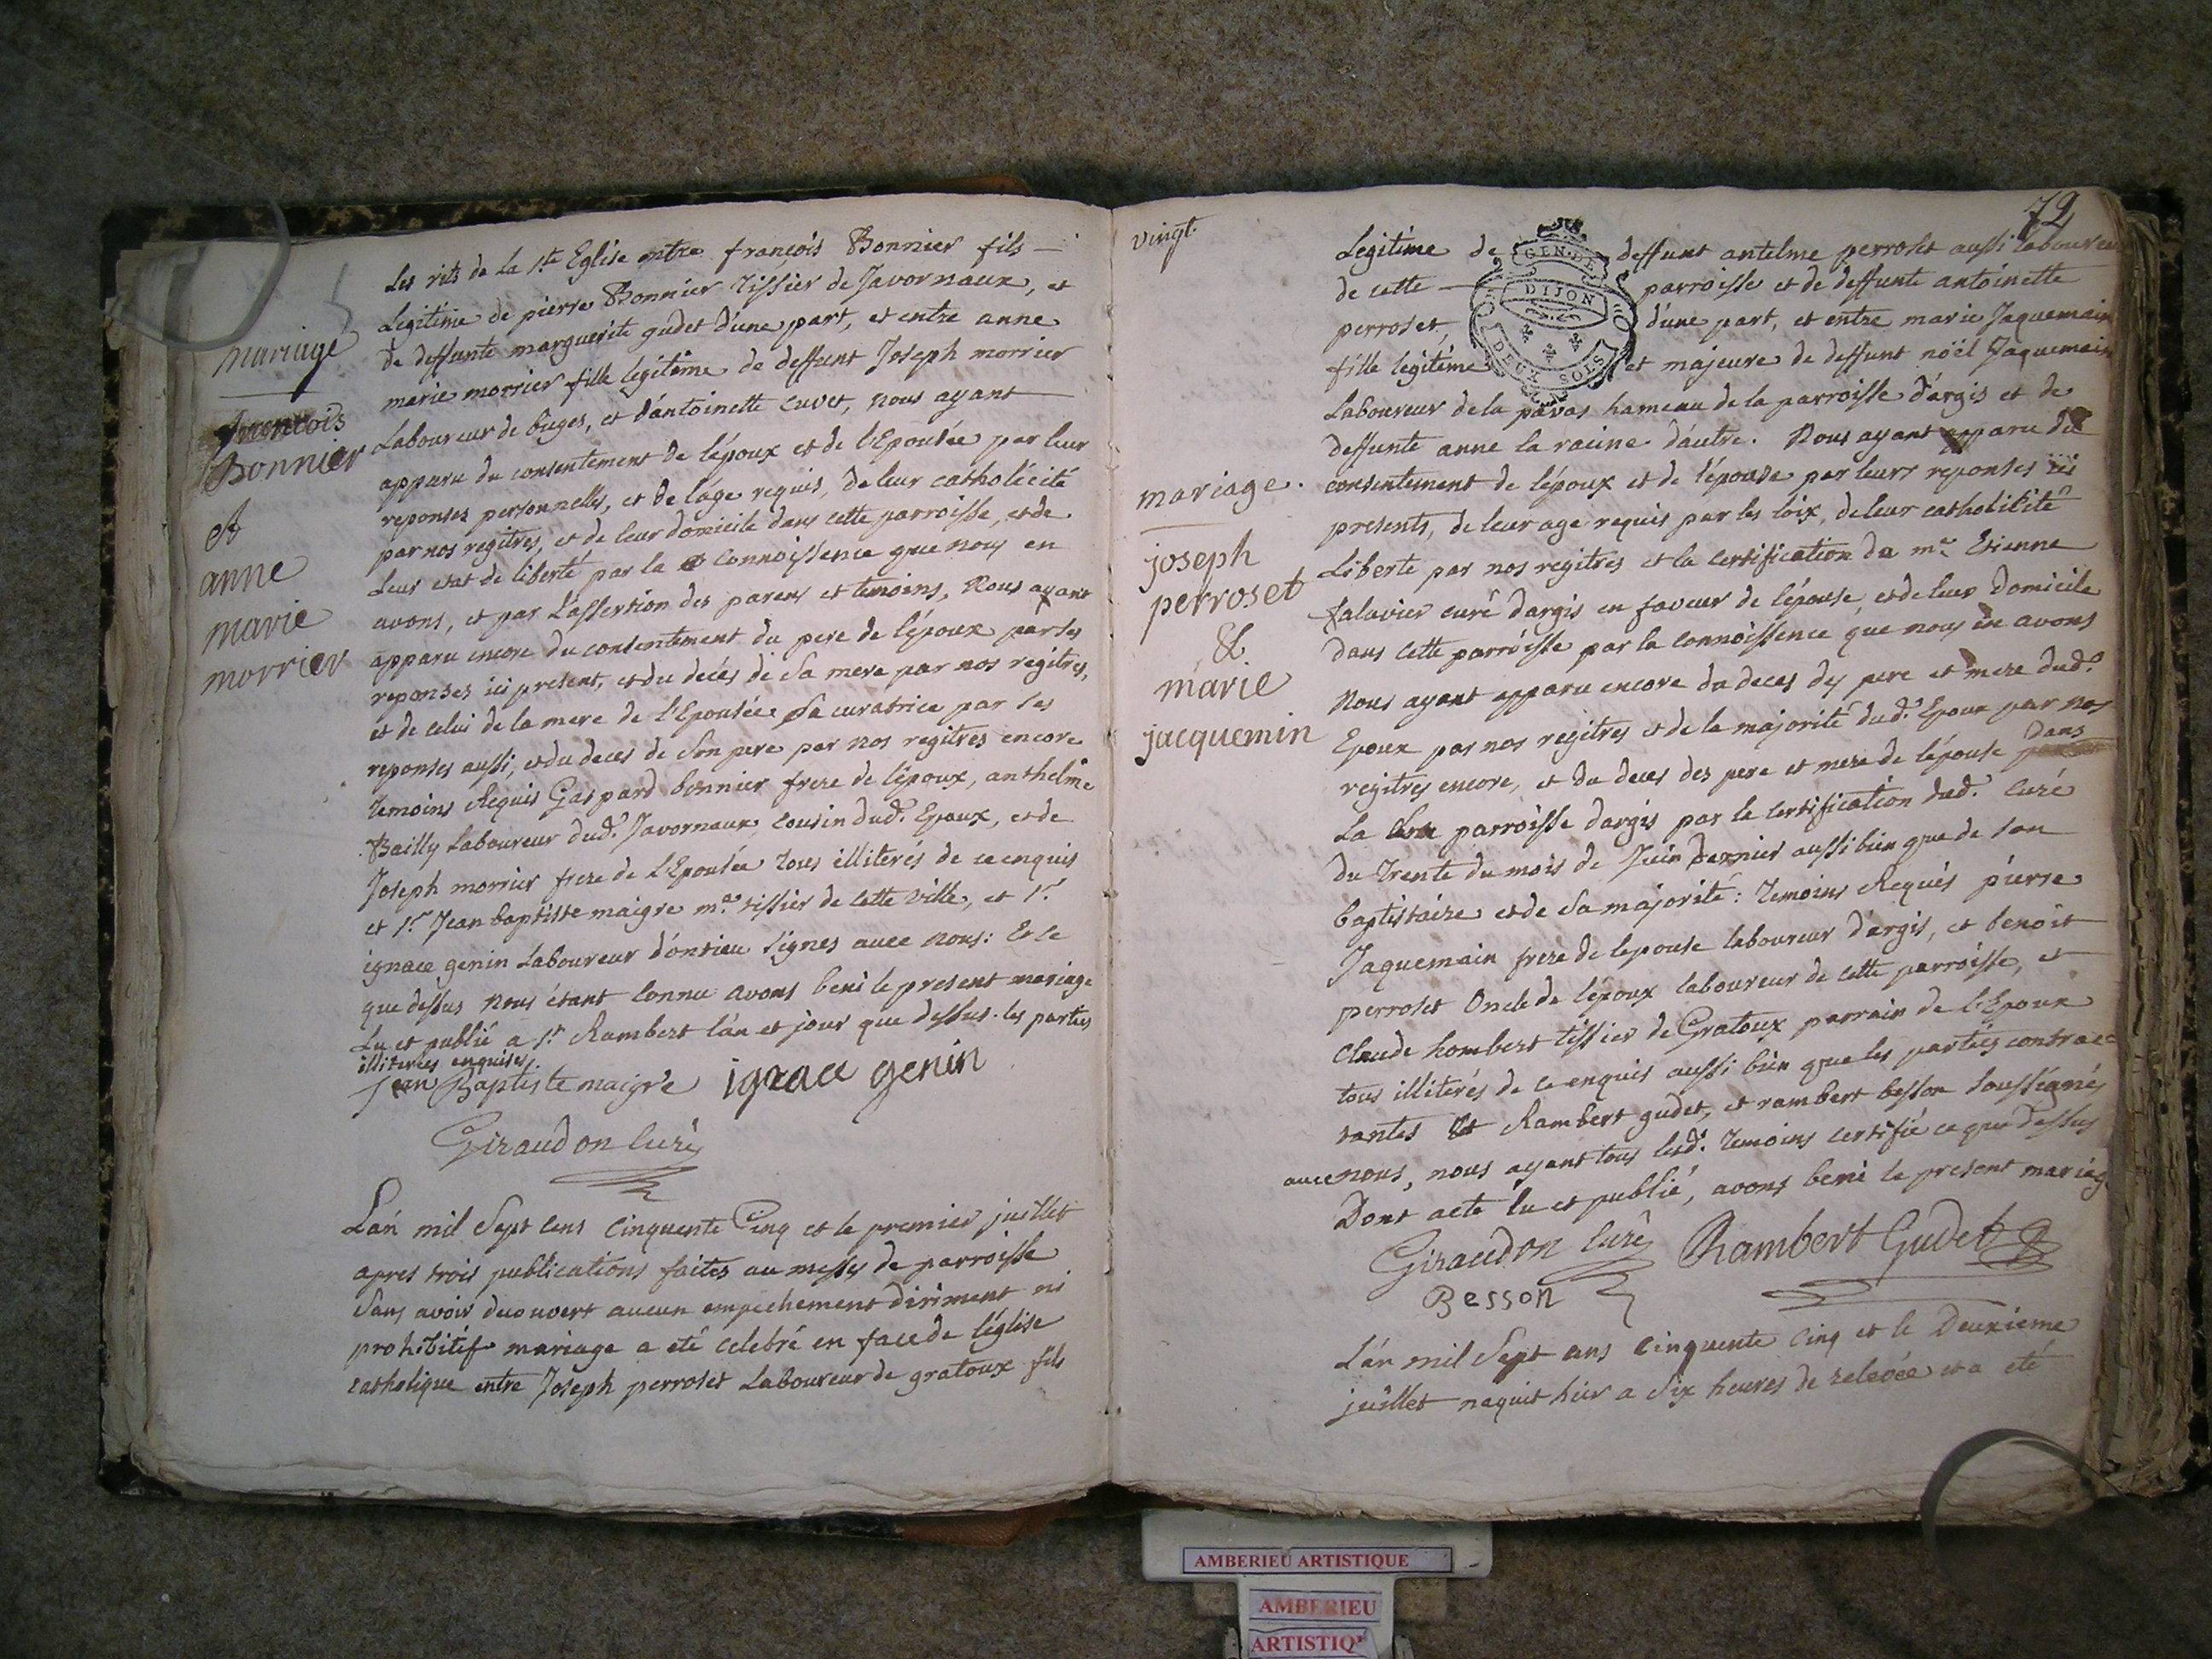 mariage
françois
Bonnier
et
anne
marie
morrier
Les rits de la Ste Eglise entre françois Bonnier fils
Legitime de pierre Bonnier tissier de Javornaux, et
de deffunte marguerite gudet d'une part, et entre anne
marie morrier fille legitime de deffunt Joseph morrier
Laboureur de buges, et d'antoinette cuvet, nous ayant
apparu du consentement de l'époux et de l'Epousée par leur
reponses personnelles, et de l'age requis, de leur catholicité
par nos regitres, et de leur domicile dans cette parroisse, et de
Leur etat de liberté par la connoissence que nous en
avons, et par L'assertion des parens et temoins, Nous ayant
apparu encore du consentement du pere de l'époux par ses
reponses ici present, et du decés de sa mere par nos regitres,
et de celui de la mere de l'Epousée sa curatrice par ses
reponses aussi, et du deces de son pere par nos regitres encore
temoins Requis Gaspard bonnier frere de l'époux, anthelme
Bailly Laboureur dud. Javornaux, cousin dud. Epoux, et de
Joseph morrier frere de L'Epousée tous illiterés de ce enquis
et Sr Jean baptiste maigre me tissier de cette ville, et Sr
ignace genin Laboureur d'ontieu signes avec nous: Et ce
que dessus nous étant connu avons beni le present mariage
Lu et publié a St Rambert l'an et jour que dessus. les parties
illiterées enquises.
Jean Baptiste maigre ignace genin
Giraudon curé
L'an mil Sept cens Cinquente Cinq et le premier juillet
apres trois publications faites au messes de parroisse
Sans avoir decouvert aucun empechement diriment ni
prohibitif mariage a eté celebré en face de l'église
catholique entre Joseph perroset Laboureur de gratoux fils
72
vingt.
mariage.
joseph
perroset
&
marie
jacquemin
GEN. DE
DIJON
DEUX SOLS
Legitime de deffunt antelme perroset aussi laboureur
de cette parroisse et de deffunte antoinette
perroset, d'une part, et entre marie Jaquemain
fille legitime et majeure de deffunt noël Jaquemain
Laboureur de la pavas hameau de la parroisse d'argis et de
deffunte anne la racine d'autre. Nous ayant apparu du
consentement de l'époux et de l'épouse par leurs reponses ici
presents, de leur age requis par les loix, de leur catholicité
Liberté par nos regitres et la certification de me Etienne
falavier curé d'argis en faveur de l'épouse, et de leur domicile
dans cette parroisse par la connoissence que nous en avons
Nous ayant apparu encore du deces des pere et mere dud.
Epoux par nos regitres et de la majorité dud. Epoux par nos
regitres encore, et du deces des pere et mere de l'épouse dans
La parroisse d'argis par le certification dud. curé
du trente du mois de Juin dernier aussi bien que de son
baptistaire et de sa majorité: Temoins Requis pierre
Jaquemain frere de l'epouse laboureur d'argis, et benoit
perroset Oncle de l'époux laboureur de cette parroisse, et
Claude hombert tissier de Gratoux parrain de l'Epoux
tous illiterés de ce enquis aussi bien que les parties contrac
tantes et Rambert gudet, et rambert besson soussignés
avec nous, nous ayant tous lesd. temoins certifié ce que dessus
Dont acte lu et publié, avons beni le present mariag
Giraudon curé Rambert Gudet
Besson
L'an mil Sept cens Cinquente Cinq et le Deuxieme
juillet naquit hier a six heures de relevée et a eté
AMBERIEU ARTISTIQUE
AMBERIEU
ARTISTIQ